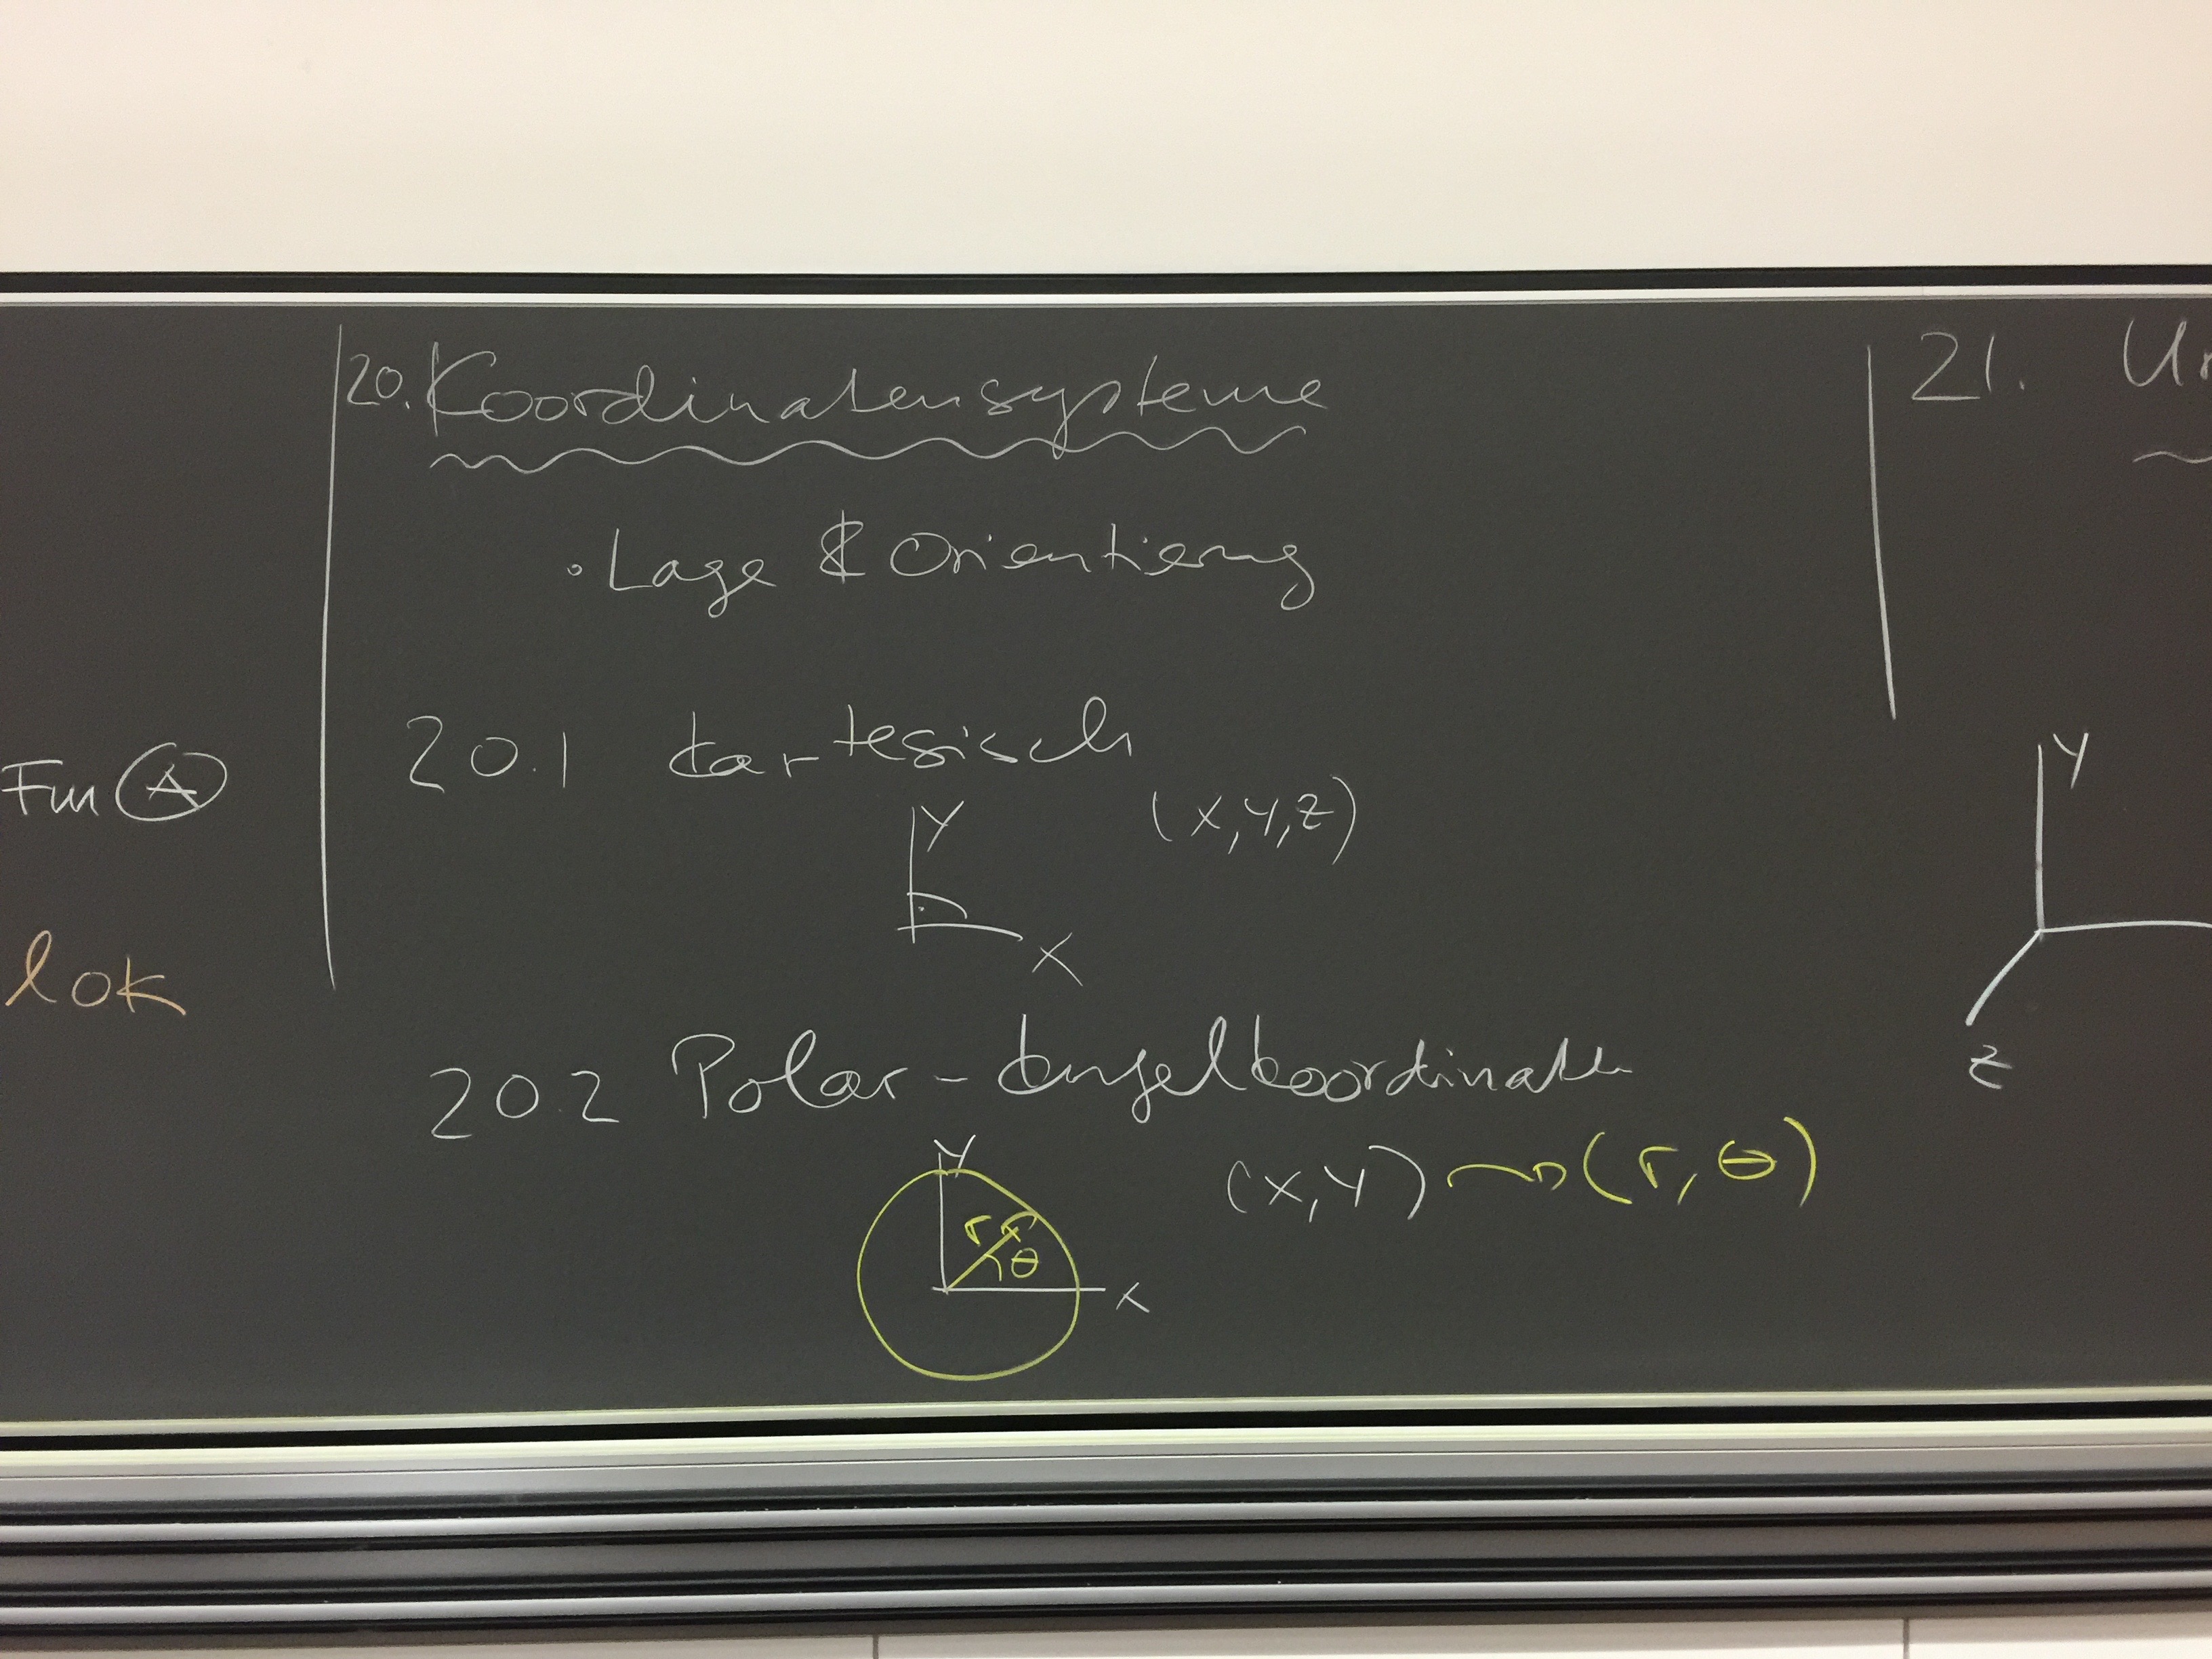 20. Koordinatensysteme
· Lage & Orientierung
20.1 kartesisch
(x,y,z)
Y
X
20.2 Polar-kugelkoordinaten
(x,y) ⇝ (r,θ)
Y
r
θ
X
Fm Ⓐ
lok
21.
Y
Z